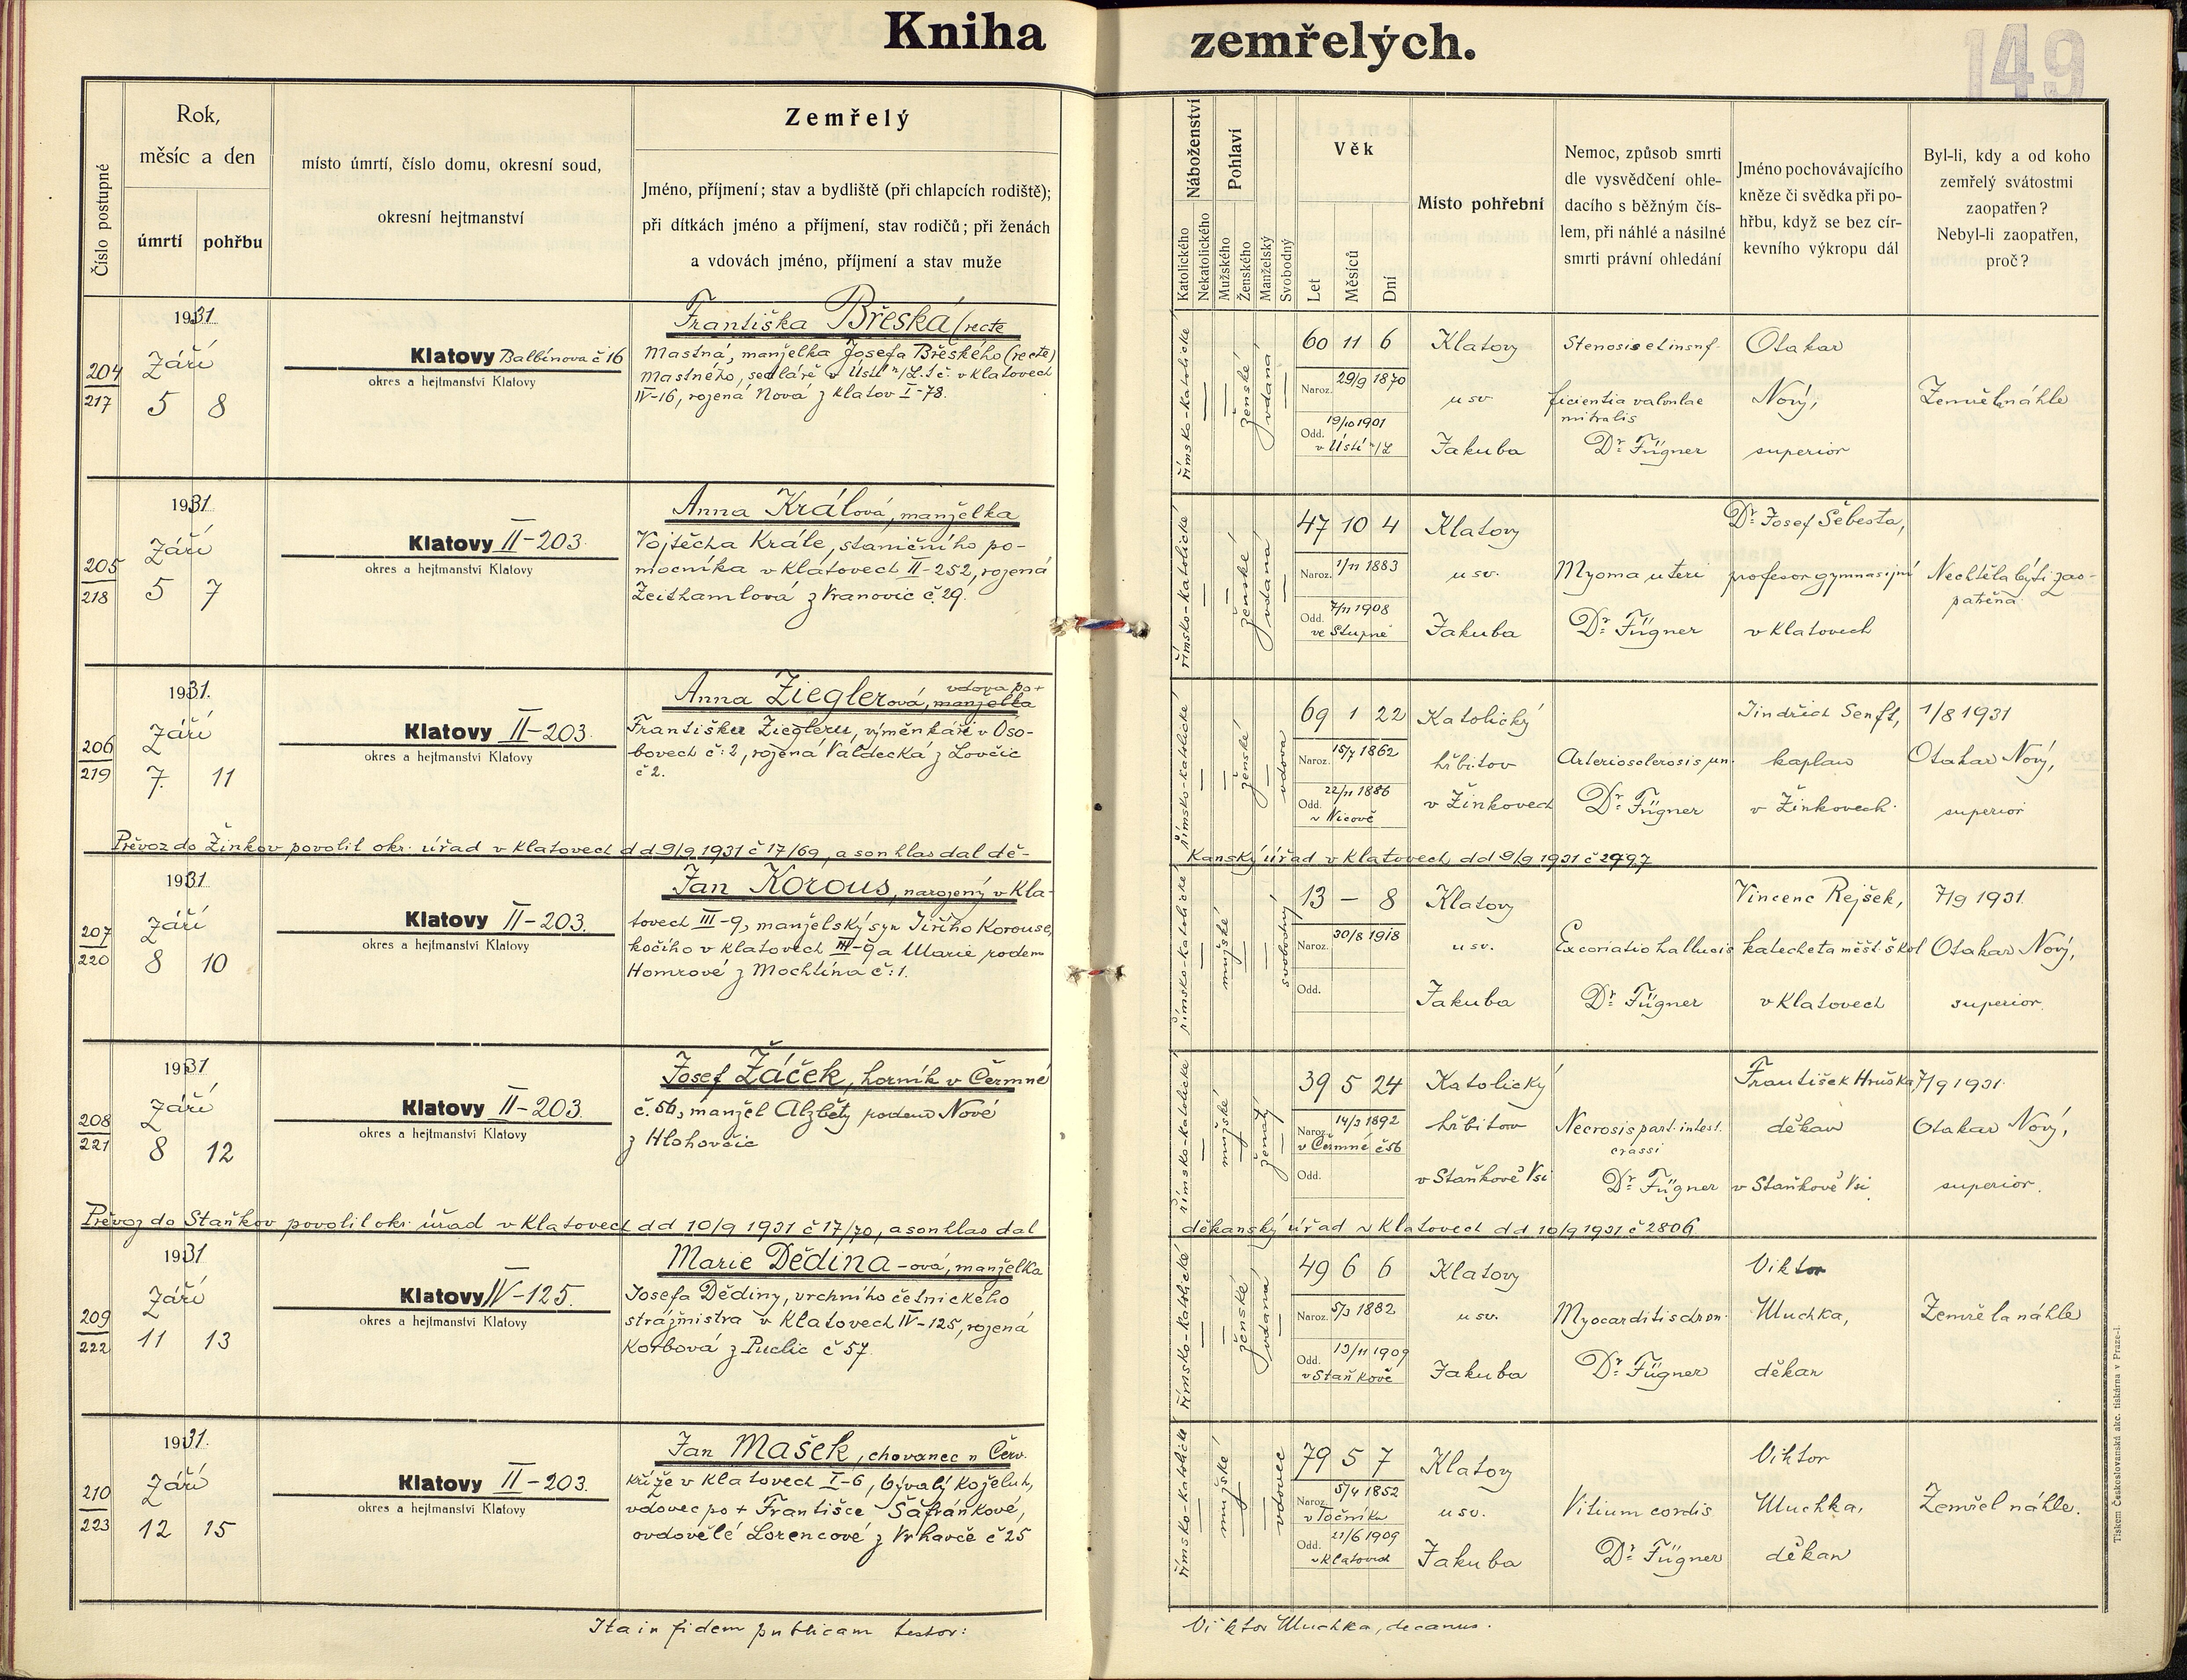 Kniha zemřelých.
149
Číslo postupné
Rok,
měsíc a den
úmrtí
pohřbu
místo úmrtí, číslo domu, okresní soud,
okresní hejtmanství
Zemřelý
Jméno, příjmení; stav a bydliště (při chlapcích rodiště);
při dítkách jméno a příjmení, stav rodičů; při ženách
a vdovách jméno, příjmení a stav muže
Náboženství
Katolického
Nekatolického
Pohlaví
Mužského
Ženského
Manželský
Svobodný
Věk
Let
Měsíců
Dní
Místo pohřební
Nemoc, způsob smrti
dle vysvědčení ohle-
dacího s běžným čís-
lem, při náhlé a násilné
smrti právní ohledání
Jméno pochovávajícího
kněze či svědka při po-
hřbu, když se bez cír-
kevního výkropu dál
Byl-li, kdy a od koho
zemřelý svátostmi
zaopatřen?
Nebyl-li zaopatřen,
proč?
204
217
1931
Září
5 8
Klatovy Balbínova č 16
okres a hejtmanství Klatovy
Františka Břeská (recte
Mastná, manželka Josefa Břeského (recte)
Mastného, sedláře v Ústí n/L. t č. v Klatovech
IV-16, rozená Nová z Klatov I-78.
římsko-katolické
ženské
vdaná
60 11 6
Naroz. 29/9 1870
Odd. 19/10 1901
v Ústí n/L
Klatovy
u sv.
Jakuba
Stenosis et insuf-
ficientia valvulae
mitralis
Dr. Fügner
Otakar
Nový,
superior
Zemřela náhle
205
218
1931
Září
5 7
Klatovy II-203.
okres a hejtmanství Klatovy
Anna Králová, manželka
Vojtěcha Krále, staničního po-
mocníka v Klatovech II-252, rozená
Zeithamlová z Vranovic č. 29.
římsko-katolické
ženské
vdaná
47 10 4
Naroz. 1/11 1883
Odd. 7/11 1908
ve Stupně
Klatovy
u sv.
Jakuba
Myoma uteri
Dr. Fügner
Dr. Josef Šebesta,
profesor gymnasijní
v Klatovech
Nechtěla býti zao-
patřena.
206
219
1931.
Září
7. 11
Klatovy II-203.
okres a hejtmanství Klatovy
Anna Zieglerová, manželka
vdova po +
Františku Ziegleru, výměnkáři v Oso-
bovech č: 2, rozená Valdecká z Lovčic
č 2.
římsko-katolické
ženské
vdova
69 1 22
Naroz. 15/7 1862
Odd. 22/11 1886
v Nicově
Katolický
hřbitov
v Žinkovech
Arteriosclerosis un.
Dr. Fügner
Jindřich Senft,
kaplan
v Žinkovech.
1/8 1931
Otakar Nový,
superior
Převoz do Žinkov povolil okr. úřad v Klatovech d d 9/9 1931 č 17/69, a souhlas dal dě-
kanský úřad v Klatovech dd 9/9 1931 č 2797
207
220
1931
Září
8 10
Klatovy II-203.
okres a hejtmanství Klatovy
Jan Korous, narozený v Kla-
tovech III-9, manželský syn Jiřího Korouse,
kočího v Klatovech III-9 a Marie rodem
Homrové z Mochtína č: 1.
římsko-katolické
mužské
svobodný
13 - 8
Naroz. 30/8 1918
Odd.
Klatovy
u sv.
Jakuba
Excoriatio hallucis
Dr. Fügner
Vincenc Rejšek,
katecheta měšt. škol
v Klatovech
7/9 1931.
Otakar Nový,
superior.
208
221
1931
Září
8 12
Klatovy II-203.
okres a hejtmanství Klatovy
Josef Žáček, horník v Čermné
č. 56, manžel Alžběty rodem Nové
z Hlohovčic
římsko-katolické
mužské
ženatý
39 5 24
Naroz. 14/3 1892
v Čermné č 56
Odd.
Katolický
hřbitov
v Staňkově Vsi
Necrosis part. intest.
crassi
Dr. Fügner
František Hruška
děkan
v Staňkově Vsi
7/9 1931.
Otakar Nový,
superior.
Převoz do Staňkov povolil okr. úřad v Klatovech dd 10/9 1931 č 17/70, a souhlas dal
děkanský úřad v Klatovech dd 10/9 1931 č 2806.
209
222
1931
Září
11 13
Klatovy IV-125.
okres a hejtmanství Klatovy
Marie Dědina-ová, manželka
Josefa Dědiny, vrchního četnického
strážmistra v Klatovech IV-125, rozená
Korbová z Puclic č 57.
římsko-katolické
ženské
vdaná
49 6 6
Naroz. 5/3 1882
Odd. 13/11 1909
v Staňkově
Klatovy
u sv.
Jakuba
Myocarditis chron.
Dr. Fügner
Viktor
Muchka,
děkan
Zemřela náhle
210
223
1931.
Září
12 15
Klatovy II-203.
okres a hejtmanství Klatovy
Jan Mašek, chovanec u Červ.
kříže v Klatovech I-6, bývalý koželuh,
vdovec po + Františce Šafránkové,
ovdovělé Lorencové z Vrhavče č 25
římsko-katolické
mužské
vdovec
79 5 7
Naroz. 5/4 1852
v Točníku
Odd. 21/6 1909
v Klatovech
Klatovy
u sv.
Jakuba
Vitium cordis
Dr. Fügner
Viktor
Muchka,
děkan
Zemřel náhle.
Ita in fidem publicam testor:
Viktor Muchka, decanus.
Tiskem Českoslovanská akc. tiskárna v Praze-I.